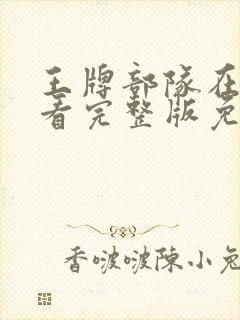 王牌部隊在
看完整版免
香啵啵陳小兔